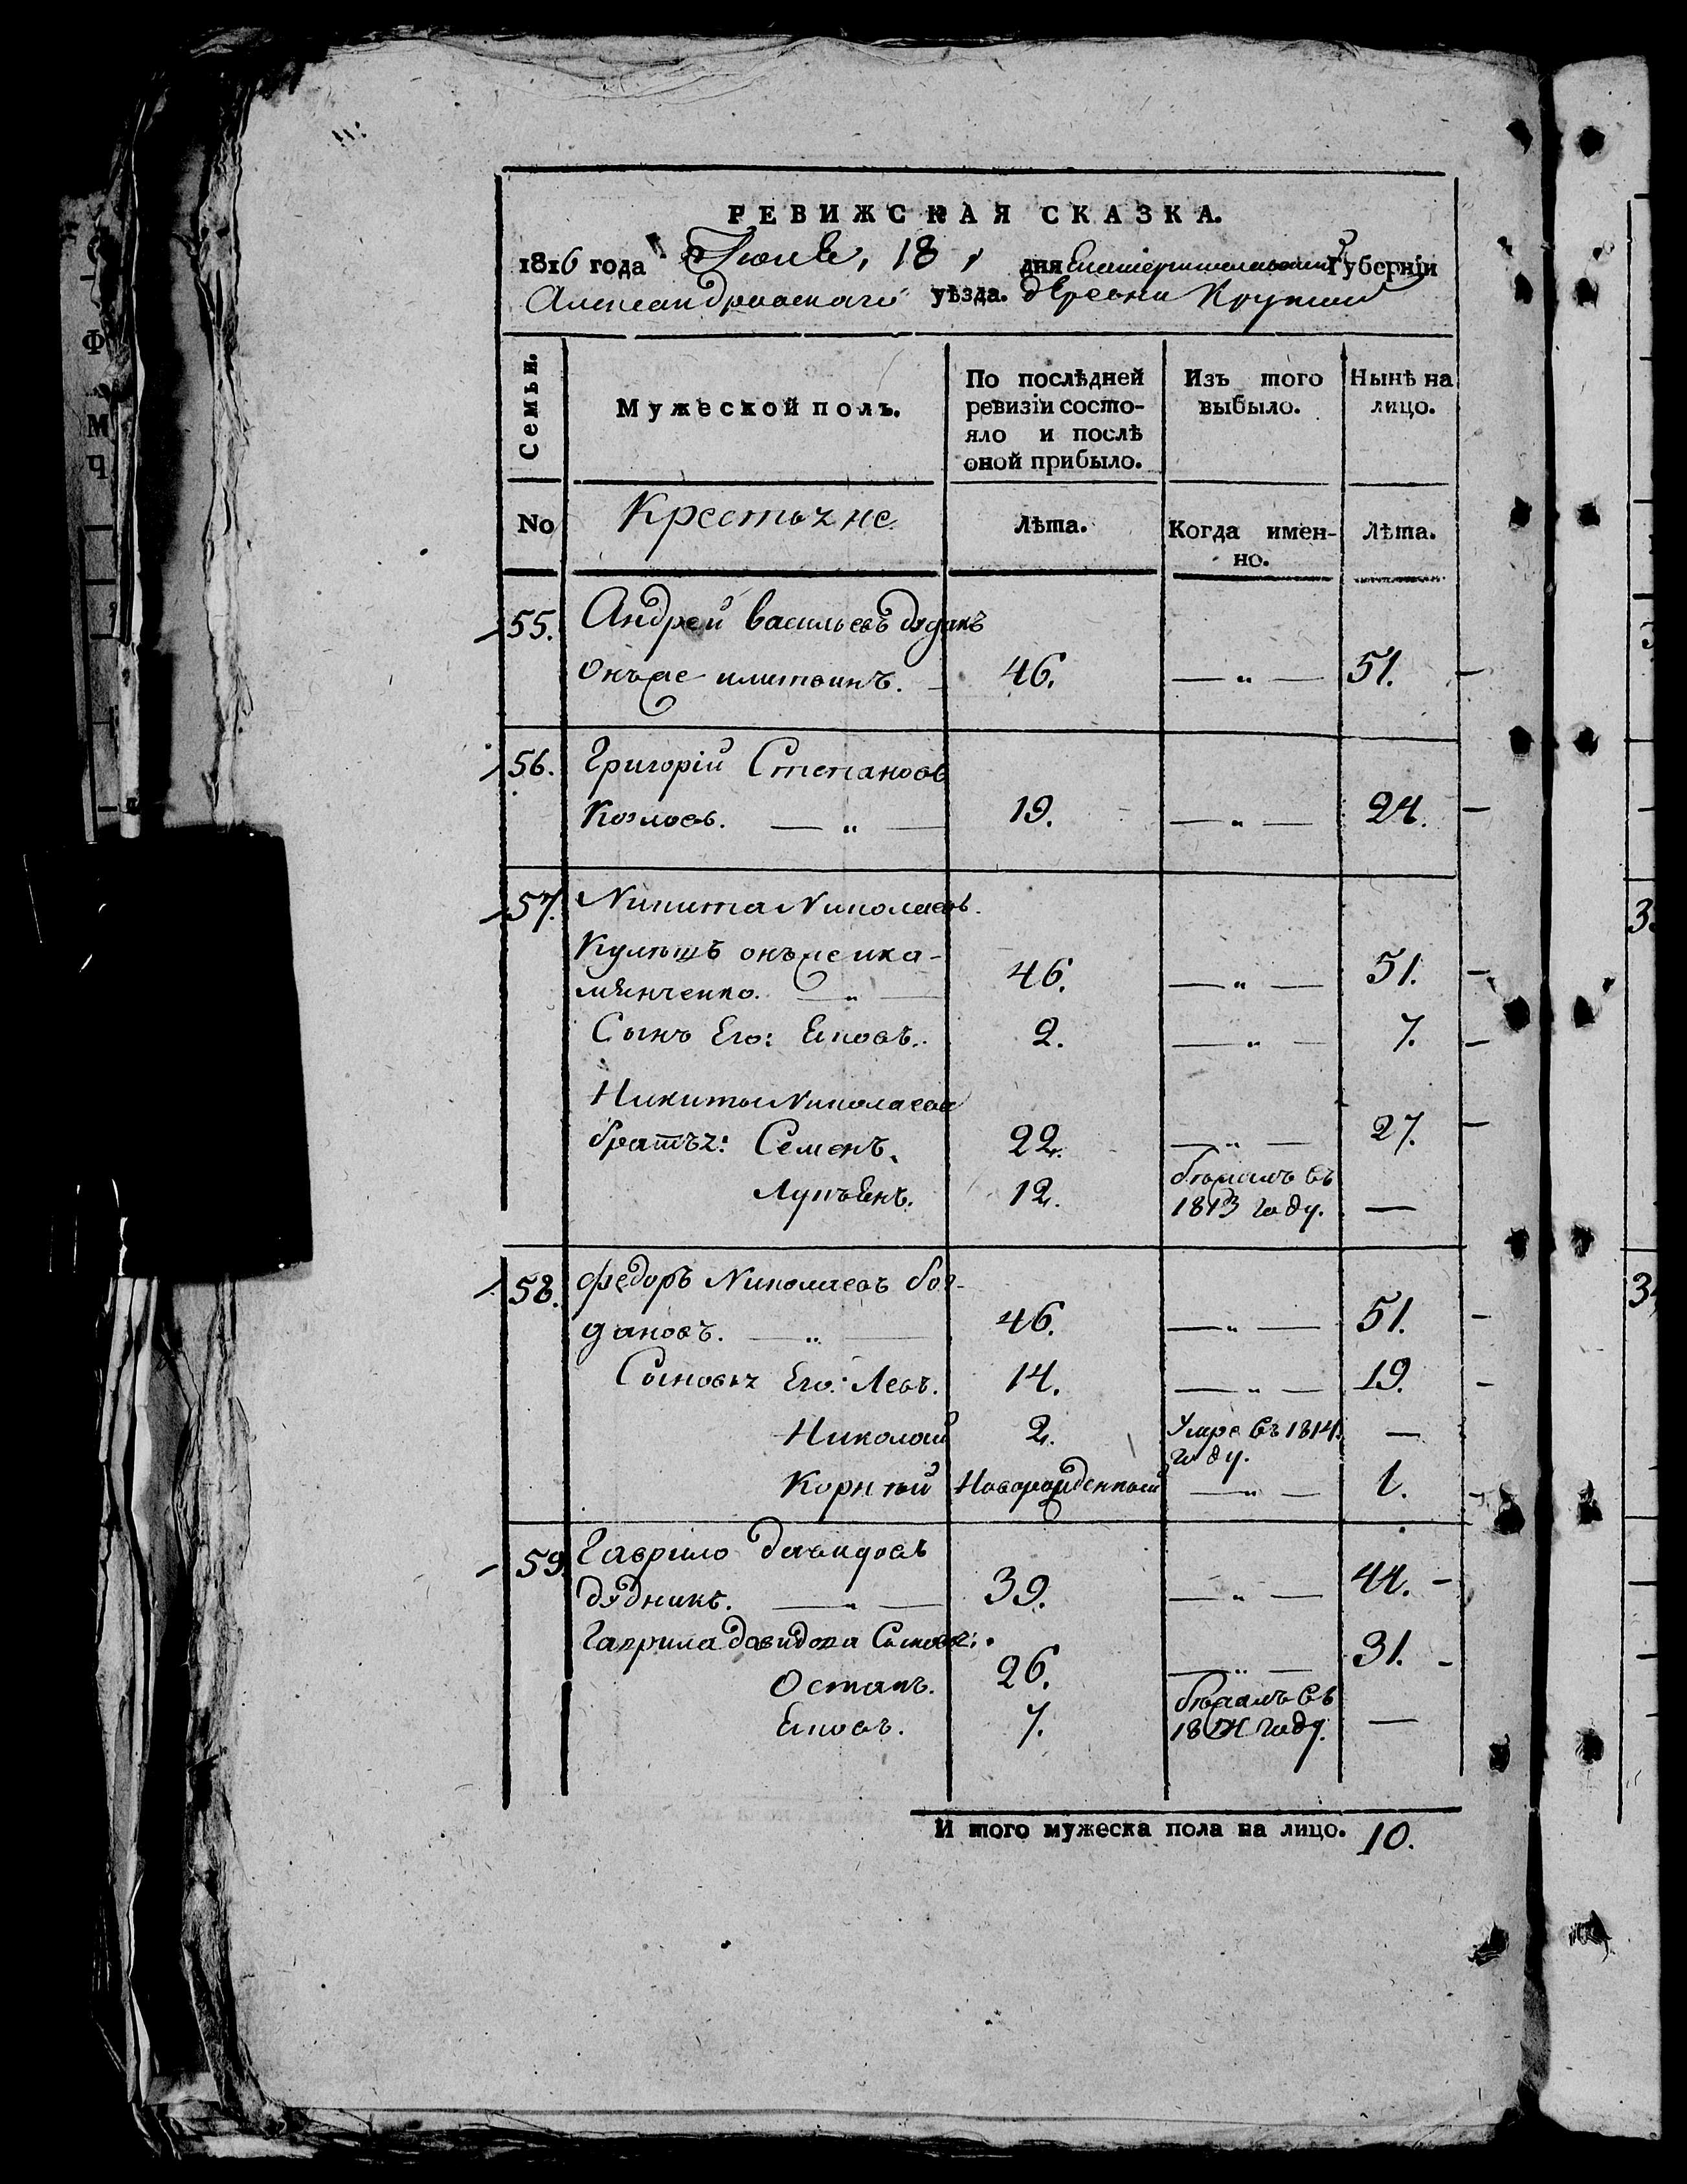 РЕВИЖСКАЯ СКАЗКА.
1816 года Июня, 18 дня Екатеринославской Губерніи
Александровскаго уѣзда. деревни Крупши
Семьи.
Мужеской полъ.
По послѣдней
ревизіи состо-
яло и послѣ
оной прибыло.
Изъ того
выбыло.
Нынѣ на
лицо.
No
Крестьяне
Лѣта.
Когда имен-
но.
Лѣта.
55. Андрей Васильевъ
онъже илитвинъ. 46. — „ — 51.
56. Григорій Степановъ
Козловъ. — „ — 19. — „ — 24.
57. Никита Николаевъ.
Кулѣшъ онъже ика-
мянченко. — „ — 46. — „ — 51.
Сынъ Его: Яковъ. 2. — „ — 7.
Никиты Николаева
братья: Семенъ. 22. — „ — 27.
Лукъянъ. 12. бѣжалъ въ
1813 году. —
58. Федоръ Николаевъ бог-
дановъ. — „ — 46. — „ — 51.
Сыновья Его: Левъ. 14. — „ — 19.
Николай 2. Умре въ 1814.
году. —
Корнѣй Новорожденный — „ — 1.
59. Гаврило давидовъ
дудникъ. — „ — 39. — „ — 44.
Гаврила давидова Сыновья:
Остапъ. 26. — „ — 31.
Яковъ. 7. бѣжалъ въ
1814 году. —
И того мужеска пола на лицо. 10.
Ф
М
Ч